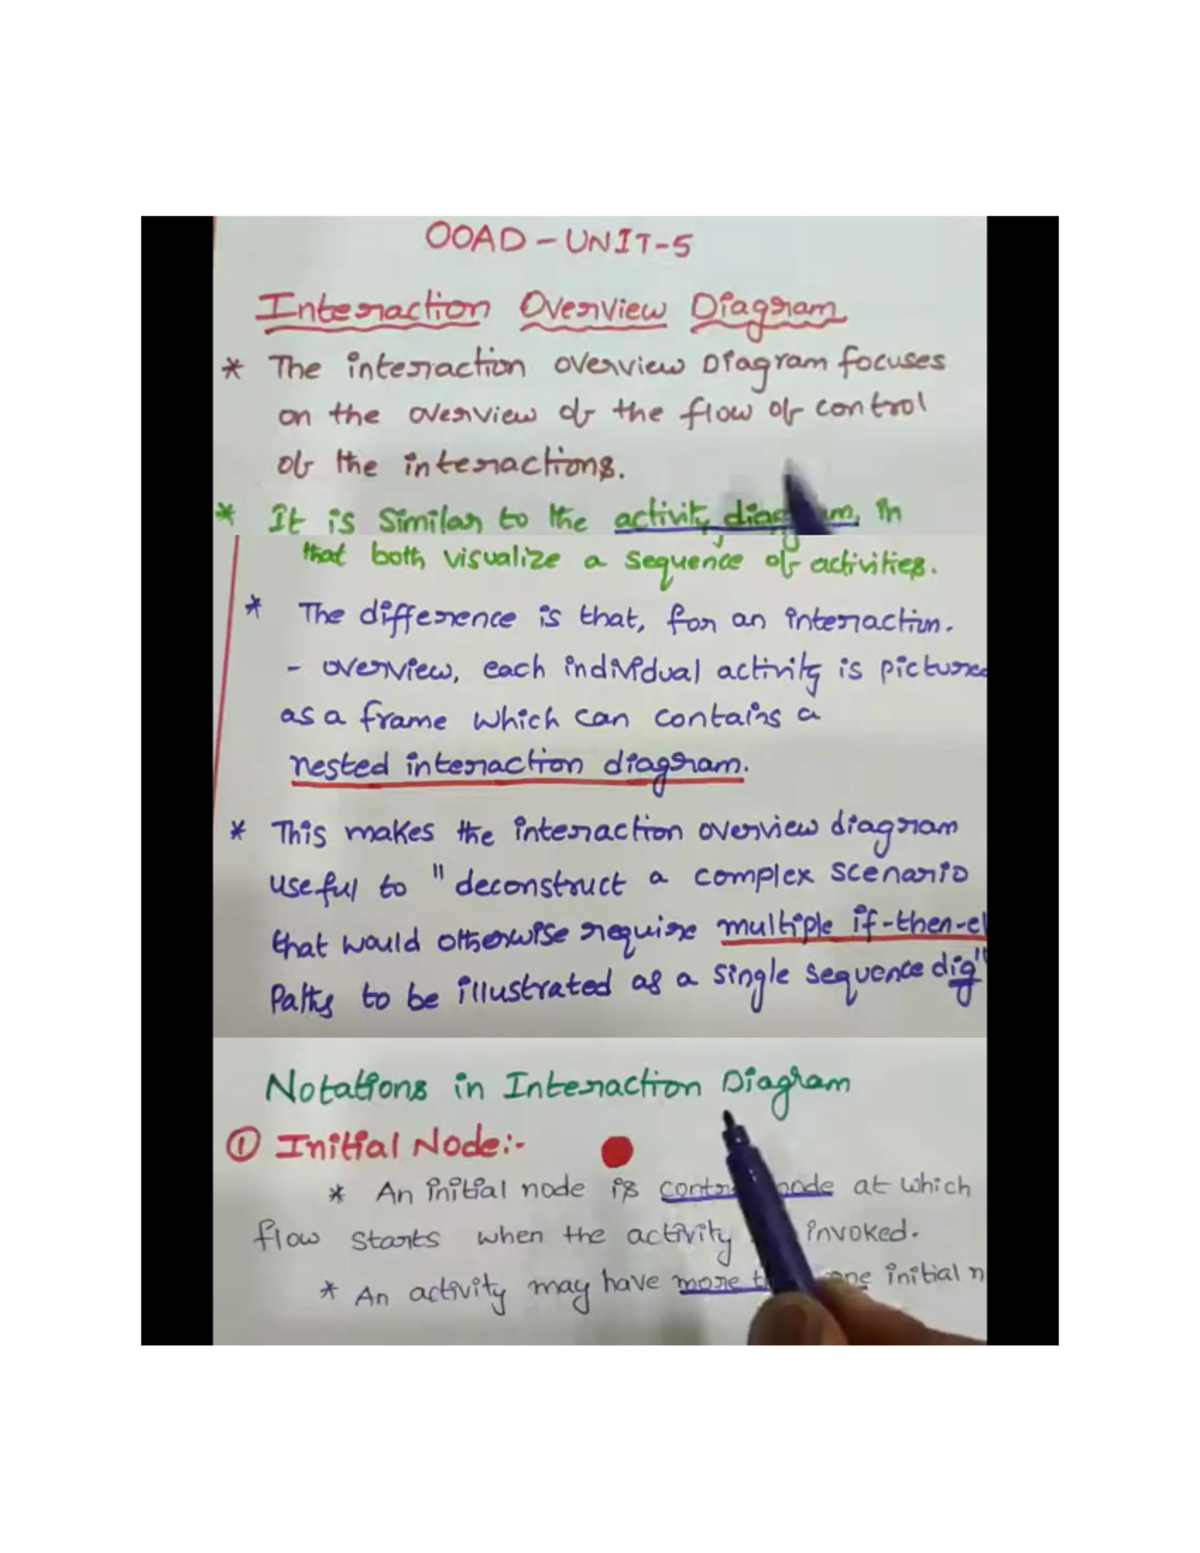 OOAD - UNIT-5
Interaction Overview Diagram
* The interaction overview Diagram focuses
on the overview of the flow of control
of the interactions.
* It is similar to the activity diagram, in
that both visualize a sequence of activities.
* The difference is that, for an interaction.
- overview, each individual activity is picture
as a frame which can contains a
nested interaction diagram.
* This makes the interaction overview diagram
useful to "deconstruct a complex scenario
that would otherwise require multiple if-then-el
Paths to be illustrated as a single sequence dig"
Notations in Interaction Diagram
① Initial Node:-
* An initial node is control node at which
flow starts when the activity invoked.
* An activity may have more one initial n